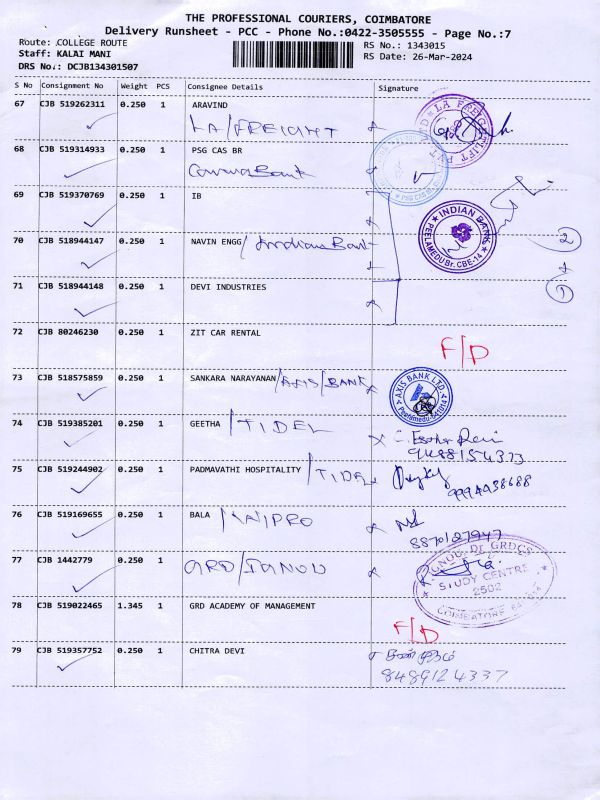 THE PROFESSIONAL COURIERS, COIMBATORE
Delivery Runsheet - PCC - Phone No.:0422-3505555 - Page No.:7
Route: COLLEGE ROUTE RS No.: 1343015
Staff: KALAI MANI RS Date: 26-Mar-2024
DRS No.: DCJB134301507
S No Consignment No Weight PCS Consignee Details Signature
67 CJB 519262311 0.250 1 ARAVIND
LA/FREIGHT
68 CJB 519314933 0.250 1 PSG CAS BR
Canara Bank
PSG CAS BR
69 CJB 519370769 0.250 1 IB
INDIAN BANK
PEELAMEDU Br. CBE-14
70 CJB 518944147 0.250 1 NAVIN ENGG/Indian Bank
2
71 CJB 518944148 0.250 1 DEVI INDUSTRIES
1
72 CJB 80246230 0.250 1 ZIT CAR RENTAL
F/D
73 CJB 518575859 0.250 1 SANKARA NARAYANAN/AXIS/BANK
AXIS BANK LTD.
74 CJB 519385201 0.250 1 GEETHA /TIDEL
75 CJB 519244902 0.250 1 PADMAVATHI HOSPITALITY /TIDEL
76 CJB 519169655 0.250 1 BALA /KAIPRO
8870127947
77 CJB 1442779 0.250 1 GRD/IGNOU
STUDY CENTRE
2502
78 CJB 519022465 1.345 1 GRD ACADEMY OF MANAGEMENT
F/D
79 CJB 519357752 0.250 1 CHITRA DEVI
8489124337